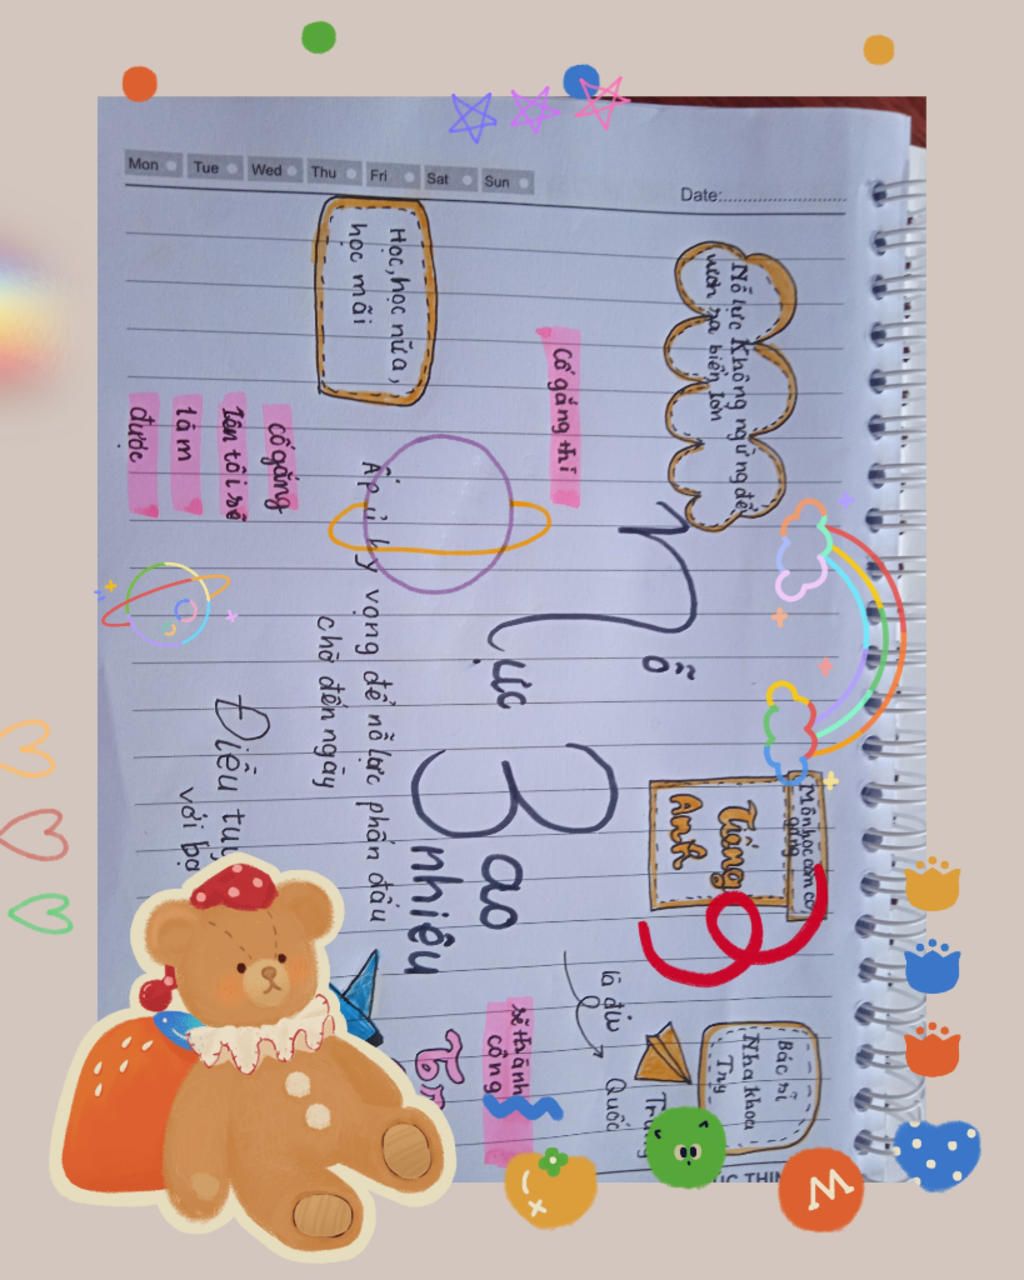 Mon Tue Wed Thu Fri Sat Sun
Date:
Nỗ lực không ngừng để
vươn ra biển lớn
Môn học cần cố
gắng
Tiếng
Anh
Bác sĩ
Nha khoa
Try
Nỗ
lực
Bao
nhiêu
là đủ
Quốc
Cố gắng thì
sẽ thành
công
Học, học nữa,
học mãi
Ấp ủ hy vọng để nỗ lực phấn đấu
chờ đến ngày
cố gắng
lên tôi sẽ
làm
được
Điều
với
W